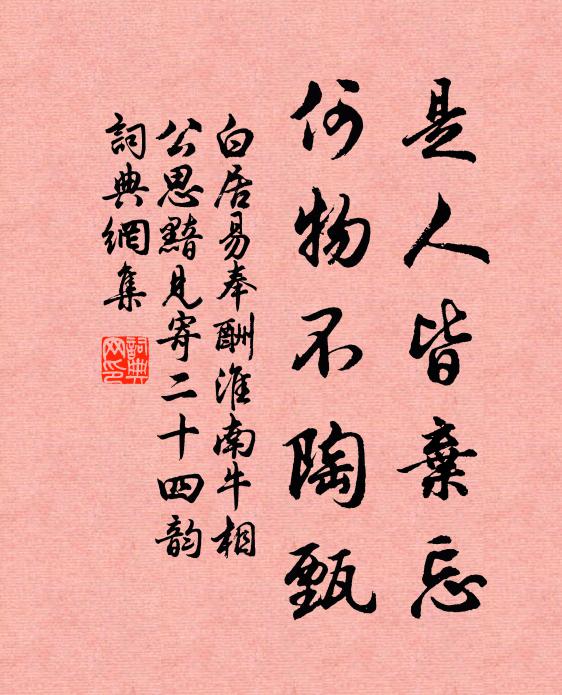 是人皆棄忘
何物不陶甄
白居易奉酬淮南牛相
公思黯見寄二十四韵
詞典網集
詞典网印